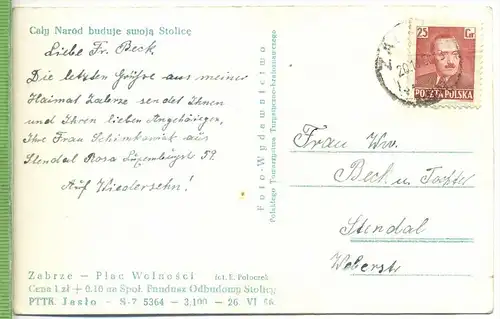 Cały Naród buduje swoją Stolicę
Liebe Fr. Beck
Die letzten Grüße aus meiner
Heimat Zabrze sendet Ihnen
und Ihren lieben Angehörigen,
Ihre Frau Schimkowiak aus
Stendal Rosa Luxemburgstr 59.
Auf Wiedersehn!
Zabrze — Plac Wolności fot. E. Poloczek
Cena 1 zł + 0.10 na Społ. Fundusz Odbudowy Stolicy
PTTK Jasło - S-7 5364 - 3,100 - 26. VI
Foto-Wydawnictwo
Polskiego Towarzystwa Turystyczno-Krajoznawczego
25 Gr
POCZTA POLSKA
Frau Ww.
Beck u. Tochter
Stendal
Weberstr